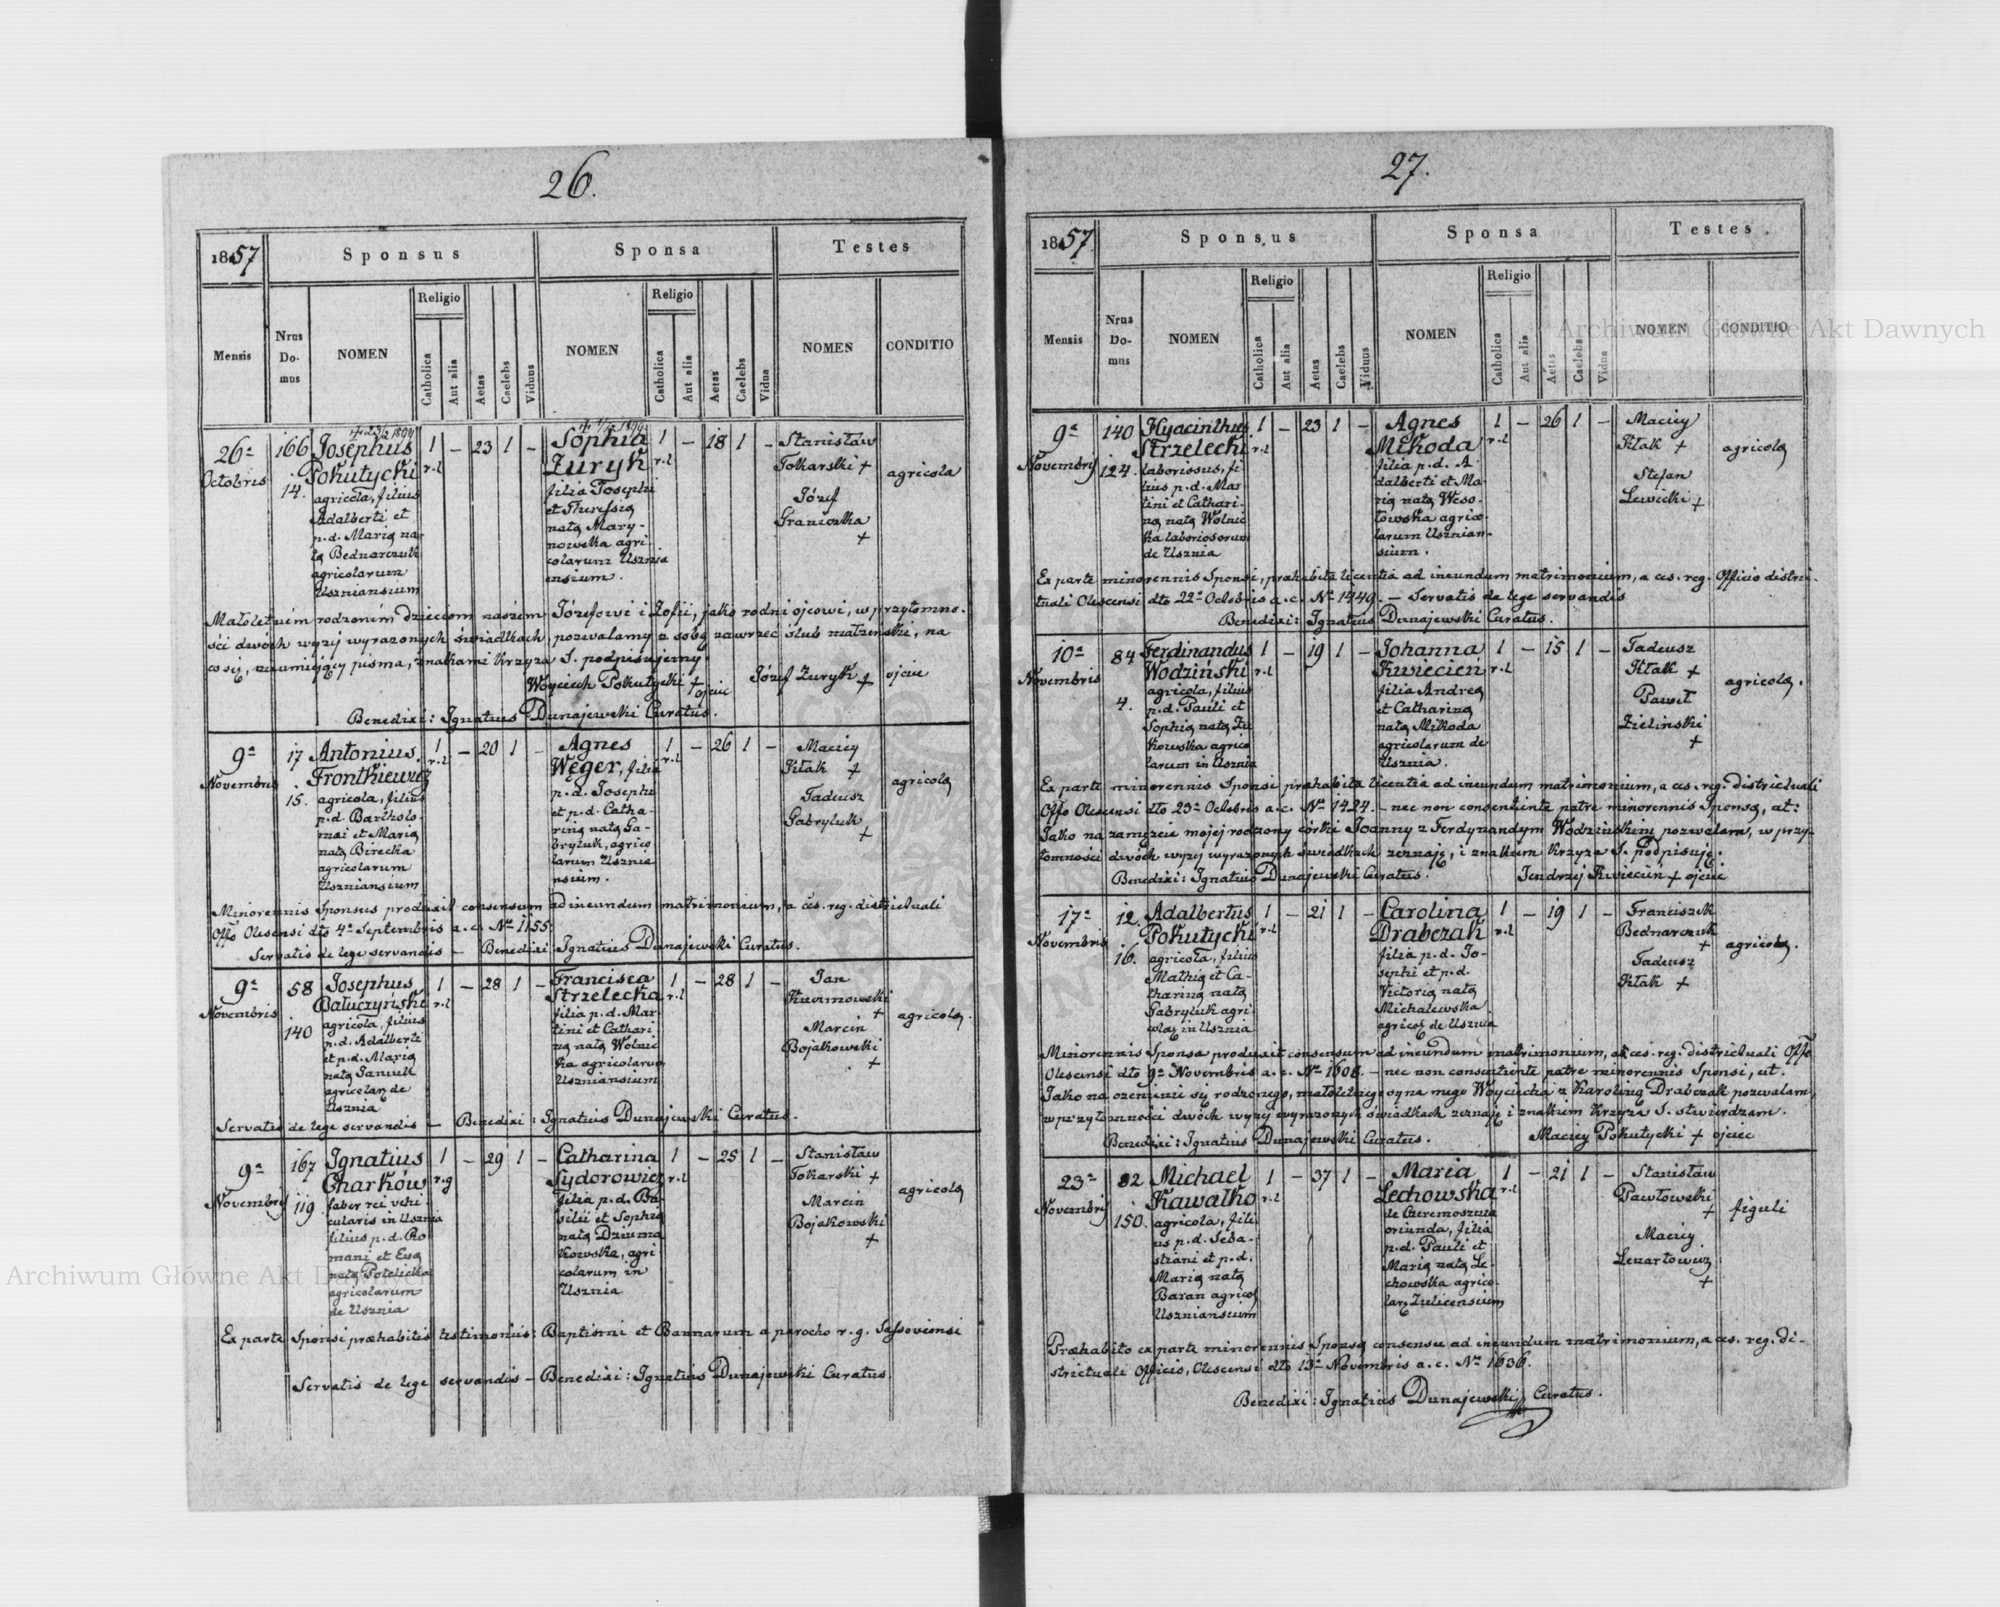 26.
1857
Sponsus
Sponsa
Testes
Mensis
Nrus Do- mus
NOMEN
Religio
Catholica
Aut alia
Aetas
Caelebs
Viduus
NOMEN
Religio
Catholica
Aut alia
Aetas
Caelebs
Vidua
NOMEN
CONDITIO
26a
Octobris
166
14.
Josephus
Pokutycki
agricola, filius
Adalberti et
p.d. Maria na-
ta Bednarczuk
agricolarum
Uszniansium
1
r.l
–
23
1
–
Sophia
Zuryk
filia Josephi
et Theressia
nata Mary-
nowska agri-
colarum Uszni
ensium.
1
r.l
–
18
1
–
Stanisław
Tokarski +
Józef
Graniczka
+
agricola
Małoletniém rodzoném dzieciom naszém Józefowi i Zofii, jako rodni ojcowi, w przytomno-
ści dwóch wyżej wyrażonych świadkach, pozwalamy z sobą zawrzeć ślub małżeński, na
co się, nieumiejący pisma, znakami krzyża S. podpisujemy.
Woyciech Pokutycki + ojciec
Józef Zuryk + ojciec
Benedixi: Ignatius Dunajewski Curatus.
9a
Novembris
17
15.
Antonius
Frontkiewicz
agricola, filius
p.d Bartholo-
mæi et Maria
nata Birecka
agricolarum
Uszniansium
1
r.l
–
20
1
–
Agnes
Węger, filia
p.d. Josephi
et p.d. Catha-
rina nata Ga-
bryluk, agrico
larum Usznia
nsium.
1
r.l
–
26
1
–
Maciey
Kłak +
Tadeusz
Gabryluk
+
agricola
Minorennis Sponsus produxit consensum ad ineundum matrimonium, a cæs. reg. districtuali
Offo Olescensi dto 4a Septembris a.c. No 1155.
Servatis de lege servandis – Benedixi: Ignatius Dunajewski Curatus.
9a
Novembris
58
140
Josephus
Bałuczyński
agricola, filius
p.d. Adalberti
et p.d. Maria
nata Janiuk
agricolar, de
Usznia
1
r.l
–
28
1
–
Francisca
Strzelecka
filia p.d. Mar-
tini et Cathari
na nata Wolnic
ka agricolarum
Uszniansium
1
r.l
–
28
1
–
Jan
Kuźimowski
+
Marcin
Bojakowski
+
agricola.
Servatis de lege servandis – Benedixi: Ignatius Dunajewski Curatus.
9a
Novembris
167
119
Ignatius
Charków
faber rei vehi-
cularis in Usznia
filius p.d. Ro
mani et Eva
nata Potelicka
agricolarum
de Usznia
1
r.g
–
29
1
–
Catharina
Sydorowicz
filia p.d. Ba-
silii et Sophia
nata Dziuma
kowska, agri
colarum in
Usznia
1
r.l
–
25
1
–
Stanisław
Tokarski +
Marcin
Bojakowski
+
agricola
Ex parte Sponsi præhabitis testimoniis: Baptismi et Bannarum a parocho r.g. Sassoviensi
Servatis de lege servandis – Benedixi: Ignatius Dunajewski Curatus.
27.
1857
Sponsus
Sponsa
Testes.
Mensis
Nrus Do- mus
NOMEN
Religio
Catholica
Aut alia
Aetas
Caelebs
Viduus
NOMEN
Religio
Catholica
Aut alia
Aetas
Caelebs
Vidua
NOMEN
CONDITIO
9a
Novembris
140
124.
Hyacinthus
Strzelecki
laboriosus, fi-
lius p.d. Mar-
tini et Cathari-
na nata Wolnic
ka laboriosorum
de Usznia
1
r.l
–
23
1
–
Agnes
Mikoda
filia p.d. A
dalberti et Ma-
ria nata Weso-
łowska agrico
larum Usznian-
sium.
1
r.l
–
26
1
–
Maciey
Kłak +
Stefan
Lewicki +
agricola
Ex parte minorennis Sponsi, præhabita licentia ad ineundum matrimonium, a cæs. reg. Officio distri-
ctuali Olescensi dto 22a Octobris a.c. No 1449. – Servatis de lege servandis
Benedixi: Ignatius Dunajewski Curatus.
10a
Novembris
84
4.
Ferdinandus
Wodziński
agricola, filius
p.d. Pauli et
Sophia nata Żu
kowska agrico
larum in Usznia
1
r.l
–
19
1
–
Johanna
Kwiecień
filia Andrea
et Catharina
nata Mikoda
agricolarum de
Usznia.
1
r.l
–
15
1
–
Tadeusz
Kłak +
Paweł
Zieliński
+
agricola.
Ex parte minorennis Sponsi præhabita licentia ad ineundum matrimonium, a cæs. reg. districtuali
Offo Olescensi dto 23a Octobris a.c. No 1424. – nec non consentiente patre minorennis Sponsa, at:
Jako na zamęzcie mojej rodzony córki Joanny z Ferdynandym Wodzińskim pozwalam, w przy-
tomności dwóch wyżej wyrażonych świadkach zeznaję, i znakiem krzyża S. podpisuję.
Benedixi: Ignatius Dunajewski Curatus.
Jendrzej Kwiecień + ojciec
17a
Novembris
12
16.
Adalbertus
Pokutycki
agricola, filius
Mathia et Ca-
tharina nata
Gabryluk agri-
colar in Usznia
1
r.l
–
21
1
–
Carolina
Drabczak
filia p.d. Jo-
sephi et p.d.
Victoria nata
Michalewska
agricol de Usznia
1
r.l
–
19
1
–
Franciszek
Bednarczuk
+
Tadeusz
Kłak +
agricola.
Minorennis Sponsa produxit consensum ad ineundum matrimonium, a cæs. reg. districtuali Offo
Olescensi dto 9a Novembris a.c. No 1608. – nec non consentiente patre minorennis Sponsi, ut.
Jako na ożenienie się rodzonego, małoletniego syna mego Woyciecha z Karoliną Drabczak pozwalam,
w przytomności dwóch wyżej wyrażonych świadkach zeznaję i znakiem krzyża S. stwierdzam.
Benedixi: Ignatius Dunajewski Curatus.
Maciey Pokutycki + ojciec
23a
Novembris
82
150.
Michael
Kawałko
agricola, fili-
us p.d. Seba-
stiani et p.d.
Maria nata
Baran agricol
Uszniansium
1
r.l
–
37
1
–
Maria
Lechowska
de Czeremosznia
oriunda, filia
p.d. Pauli et
Maria nata Le-
chowska agrico-
lar, Zulicensium
1
r.l
–
21
1
–
Stanisław
Pawłowski
+
Maciey
Lenartowicz
+
figuli
Præhabito ex parte minorennis Sponsa consensu ad ineundum matrimonium, a cæs. reg. di-
strictuali Officio, Olescensi dto 13a Novembris a.c. No 1636.
Benedixi: Ignatius Dunajewski Curatus.
Archiwum Główne Akt Dawnych
Archiwum Główne Akt Dawnych